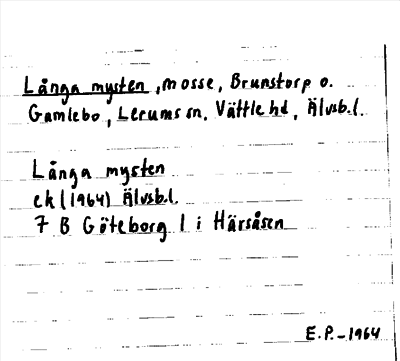 Långa mysten, mosse, Brunstorp o.
Gamlebo, Lerums sn, Vättle hd, Älvsb.l.
Långa mysten
ek (1964) Älvsb.l.
7 B Göteborg 1 i Härsåsen
E.P.-1964